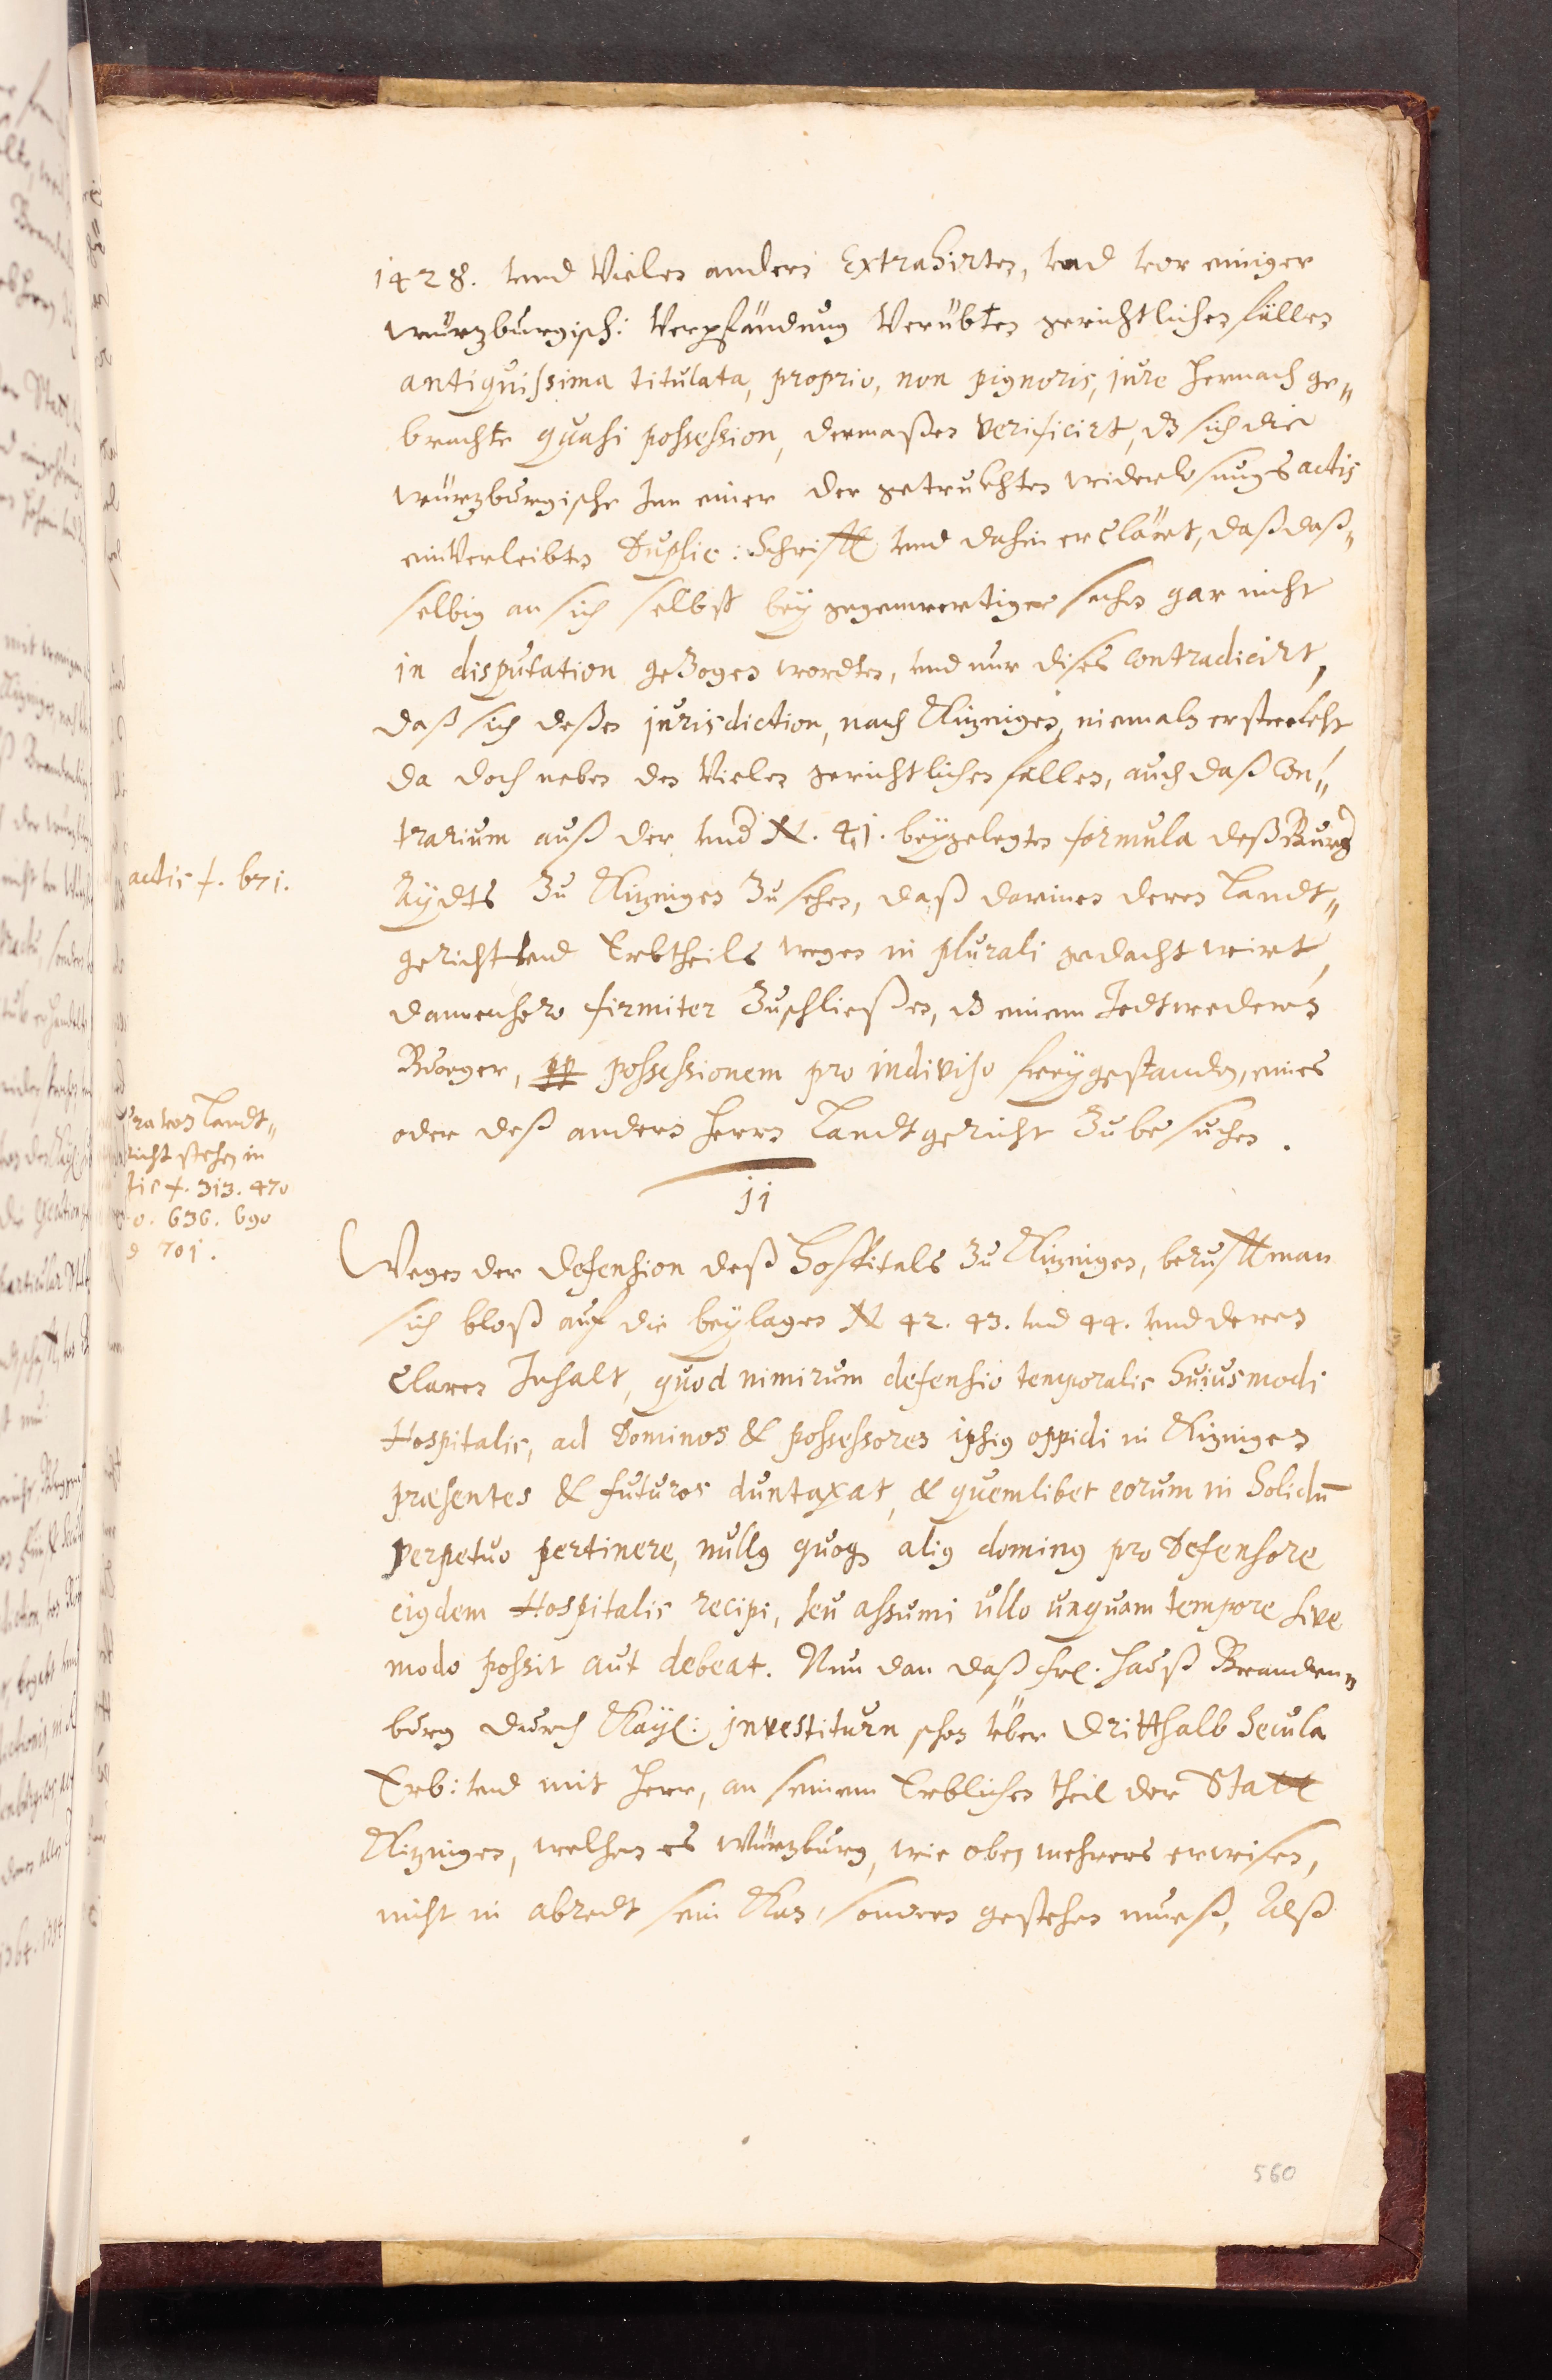 1428. vnd Vielen andern Extrahirten, vnd vor einiger
würzburgisch: Verpfändung Verübten gerichtlichen fällen
antiquissima titulata, proprio, non pignoris, jure hernach ge„
brachte quasi possession, dermaßen verificirt, dz sich die
würzburgische Inn einer der getruckhten widerlosungs actis
einverleibten Duplic: Schrifft vnd dahin erclärt, daß daß„
selbig an sich selbst bey gegenwertiger sachen gar nicht
in disputation gezogen wordten, vnd nur dises contradicirt,
daß sich deßen jurisdiction, nach Kitzingen, niemaln erstreckht
da doch neben den Vielen gerichtlichen fällen, auch daß Con„
trarium auß der vnd N. 41. beygelegten formula deß Burg
Aydts zu Kitzingen zu sehen, daß darinen deren Landt„
gericht vnd Erbtheils wegen in plurali gedacht wirt,
dannenhero firmiter zuschließen, dz einem Jedtwedern
Burger, pp possessionem pro indiviso freygestanden, eines
oder deß andern herrn Landtgericht zu besuchen.
actis f. 671.
Landt„
richt stehen in
f. 313. 470
636. 690
701.
11
Wegen der defension deß Hospitals zu Kitzingen, berufft man
sich bloß auf die beylagen N 42. 43. vnd 44. vnd deren
claren Inhalt, quod nimirum defensio temporalis huiusmodi
Hospitalis, ad Dominos & possessores ipsius oppidi in Kitzingen
præsentes & futuros duntaxat, & quemlibet eorum in solidū
perpetuo pertinere, nullus quoq alius dominus pro Defensore
eiusdem Hospitalis recipi, seu assumi ullo unquam tempore sive
modo possit aut debeat. Nun dan daß frl. hauß Branden„
burg durch Kayl: investiturn schon über dritthalb secula
Erb: vnd mit herr, an seinem Erblichen theil der Statt
Kitzingen, welchen es Würzburg, wie oben mehrers erwisen,
nicht in abredt sein Kan, sondern gestehen mueß, Alß
560